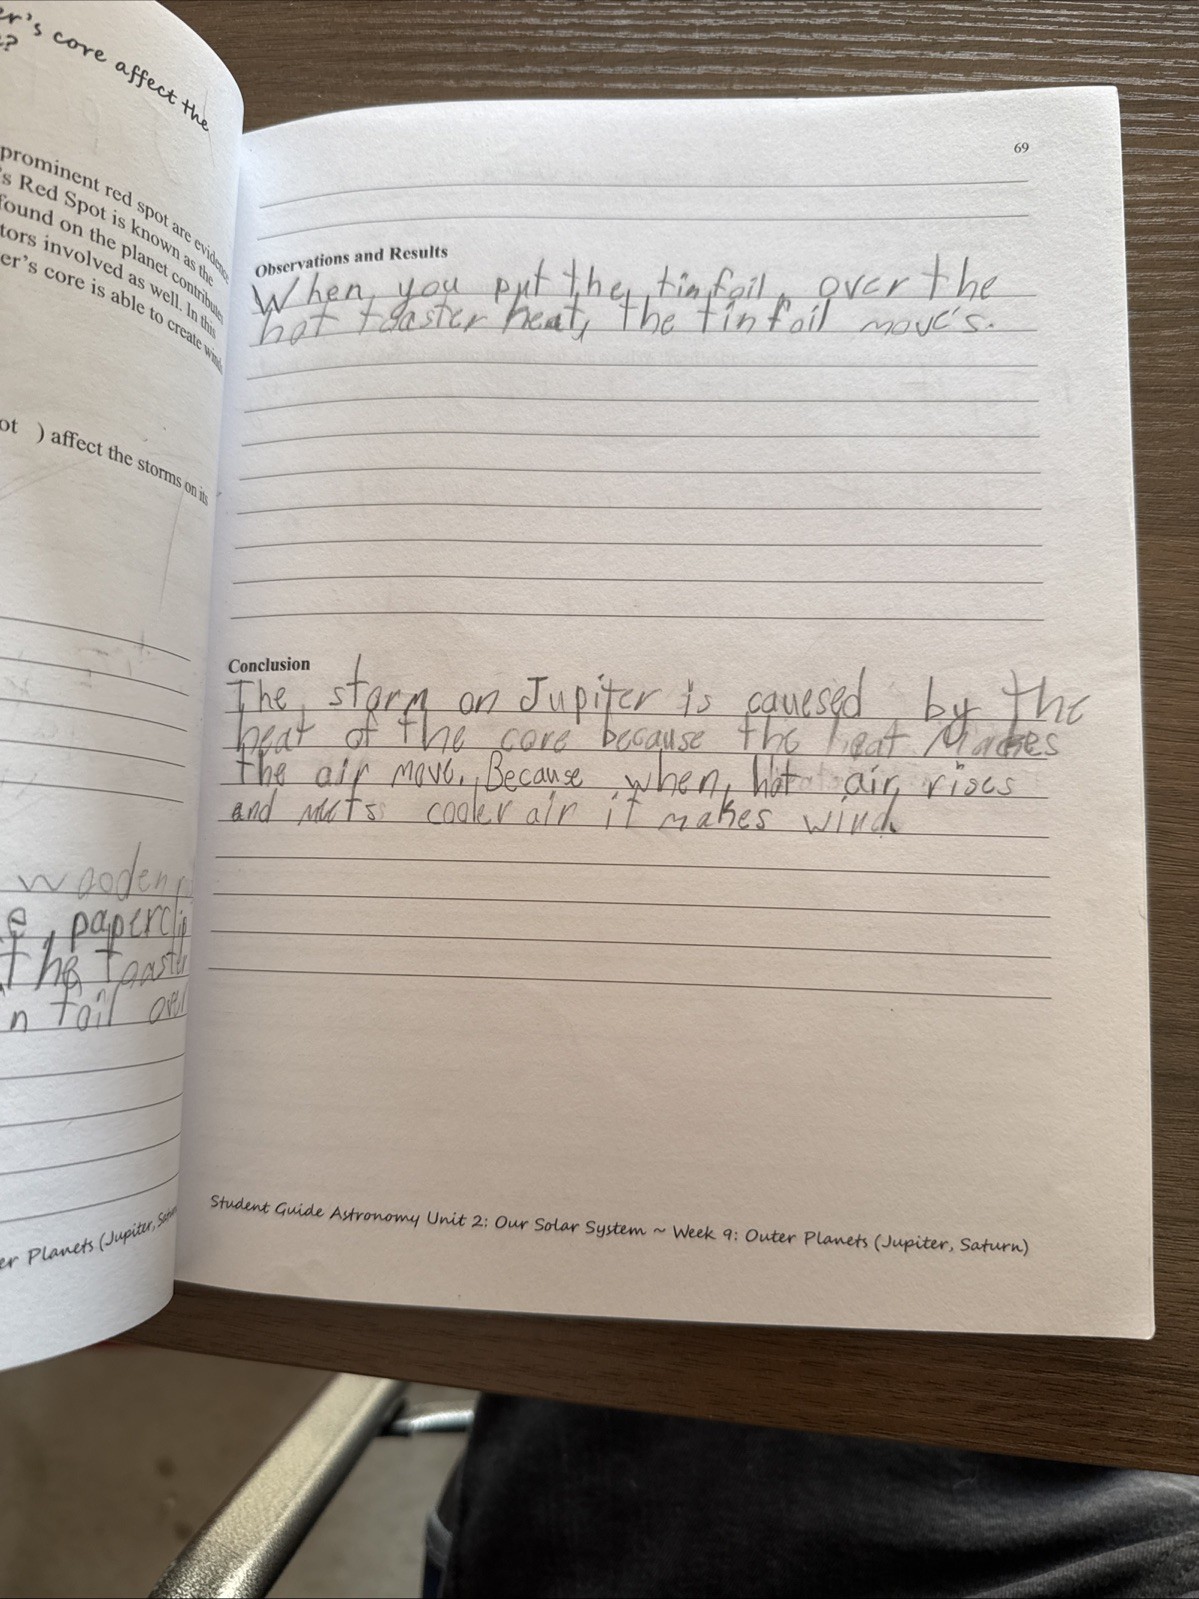 er's core affect the
e?
prominent red spot are evidence
's Red Spot is known as the
found on the planet contributes
tors involved as well. In this
er's core is able to create winds
ot ) affect the storms on its
wooden
e, paperclip
the toaster
n foil over
er Planets (Jupiter, Saturn
69
Observations and Results
When you put the tinfoil over the
hot toaster heat, the tinfoil move's.
Conclusion
The storm on Jupiter is cauesed by the
heat of the core because the heat Makes
the air move. Because when hot air rises
and mets cooler air it makes wind
Student Guide Astronomy Unit 2: Our Solar System ~ Week 9: Outer Planets (Jupiter, Saturn)